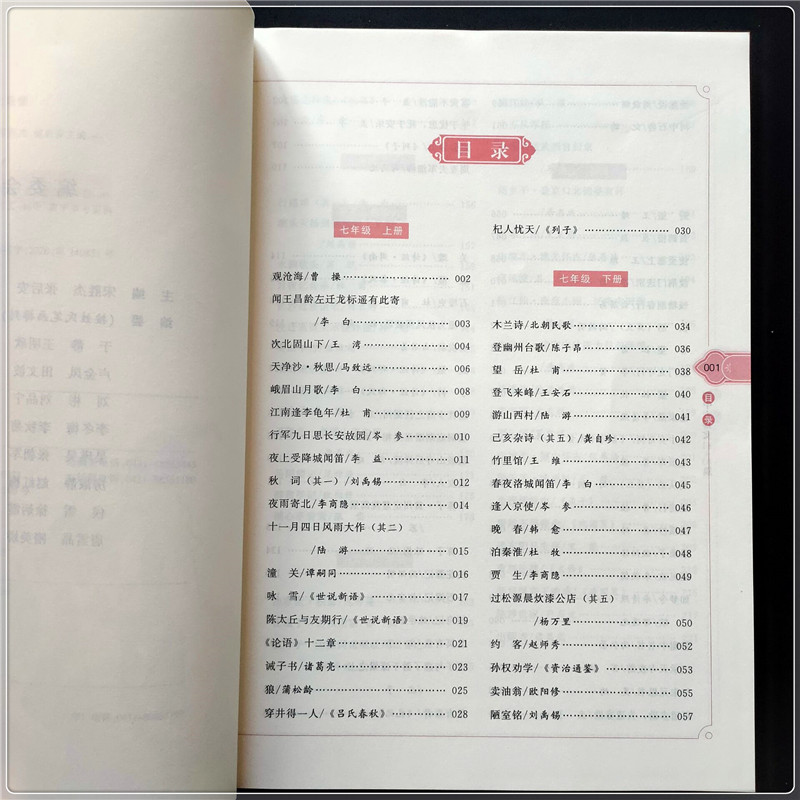 目录
七年级 上册
观沧海/曹 操……002
闻王昌龄左迁龙标遥有此寄
/李 白……003
次北固山下/王 湾……004
天净沙·秋思/马致远……006
峨眉山月歌/李 白……008
江南逢李龟年/杜 甫……009
行军九日思长安故园/岑 参……010
夜上受降城闻笛/李 益……011
秋 词(其一)/刘禹锡……012
夜雨寄北/李商隐……014
十一月四日风雨大作(其二)
/陆 游……015
潼 关/谭嗣同……016
咏 雪/《世说新语》……017
陈太丘与友期行/《世说新语》……019
《论语》十二章……021
诫子书/诸葛亮……023
狼/蒲松龄……025
穿井得一人/《吕氏春秋》……028
杞人忧天/《列子》……030
七年级 下册
木兰诗/北朝民歌……034
登幽州台歌/陈子昂……036
望 岳/杜 甫……038
登飞来峰/王安石……040
游山西村/陆 游……041
己亥杂诗(其五)/龚自珍……042
竹里馆/王 维……043
春夜洛城闻笛/李 白……045
逢入京使/岑 参……046
晚 春/韩 愈……047
泊秦淮/杜 牧……048
贾 生/李商隐……049
过松源晨炊漆公店(其五)
/杨万里……050
约 客/赵师秀……052
孙权劝学/《资治通鉴》……053
卖油翁/欧阳修……055
陋室铭/刘禹锡……057
001
目录